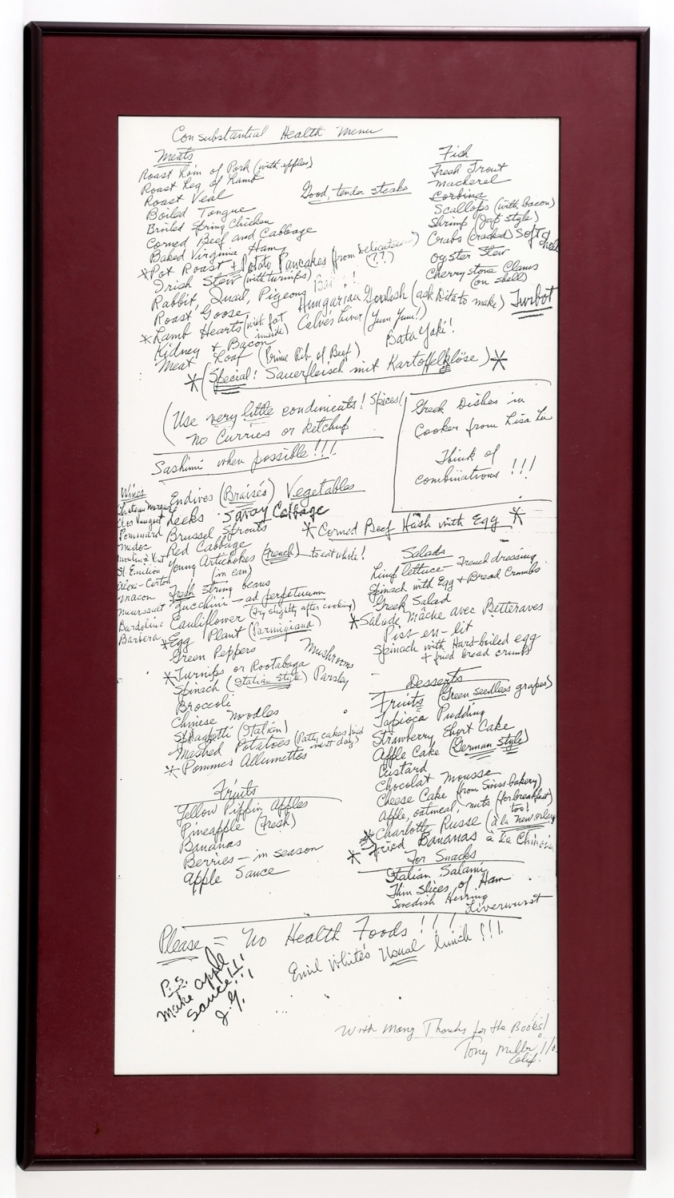 Consubstantial Health Menu
Meats
Roast Loin of Pork (with apples)
Roast Leg of Lamb
Roast Veal
Boiled Tongue
Broiled Spring Chicken
Corned Beef and Cabbage
Baked Virginia Ham
*Pot Roast + Potato Pancakes (from Delicatessen) (??)
Irish Stew (with turnips)
Rabbit, Quail, Pigeons
Roast Goose
Hungarian Goulash (ask Dita to make)
*Lamb Hearts (with fat inside)
Calves Liver (Yum Yum!)
Kidney + Bacon
Bata Yaki!
Meat Loaf (Prime Rib of Beef)
*(Special! Sauerfleisch mit Kartoffelklöse)*
Good, tender steaks
Fish
Fresh Trout
Mackerel
Corbina
Scallops (with bacon)
Shrimp (Jap style)
Crabs (cracked) Soft
Oyster Stew
Cherrystone Clams
(on shells)
Turbot
(Use very little condiments! Spices!
No Curries or Ketchup
Sashimi when possible!!!
Greek Dishes in
Cooker from Lisa Lu
Think of
combinations!!!
*Corned Beef Hash with Egg*
Wines
Pommard
Medoc
St. Emilion
Meursault
Bardolino
Barbera
Vegetables
Endives (Braisés)
Leeks Savoy Cabbage
Brussel Sprouts
Red Cabbage
Young Artichokes (French) to eat whole!
(in can)
Fresh String beans
Zucchini - ad perpetuum
Cauliflower (Fry slightly after cooking)
*Egg Plant (Parmigiana)
Green Peppers
Mushrooms
*Turnips or Rootabaga
Spinach (Italian Style) Parsley
Broccoli
Chinese Noodles
Spaghetti (Italian)
Mashed Potatoes (Patty cakes fried next day)
*Pommes Allumettes
Salads
Limp lettuce - French dressing
Spinach with Egg + Bread Crumbs
Greek Salad
*Salade Mâche avec Betteraves
Piss-en-lit
Spinach with Hard-boiled egg
+ fried bread crumbs
Desserts
Fruits (Green seedless grapes)
Tapioca Pudding
Strawberry Short Cake
Apple Cake (German Style)
Custard
Chocolat Mousse
Cheese Cake (from Swiss bakery)
Apple, oatmeal, nuts (for breakfast too!)
*Charlotte Russe (à la New orley
*Fried Bananas à la Chinois
For Snacks
Italian Salami
Thin slices of Ham
Swedish Herring
Liverwurst
Fruits
Yellow Pippin Apples
Pineapple (Fresh)
Bananas
Berries - in season
Apple Sauce
Please = No Health Foods!!!
Emil White's Usual lunch!!!
P.S.
Make apple
sauce!!!
With Many Thanks for the Books!
Tony Miller
Calif.